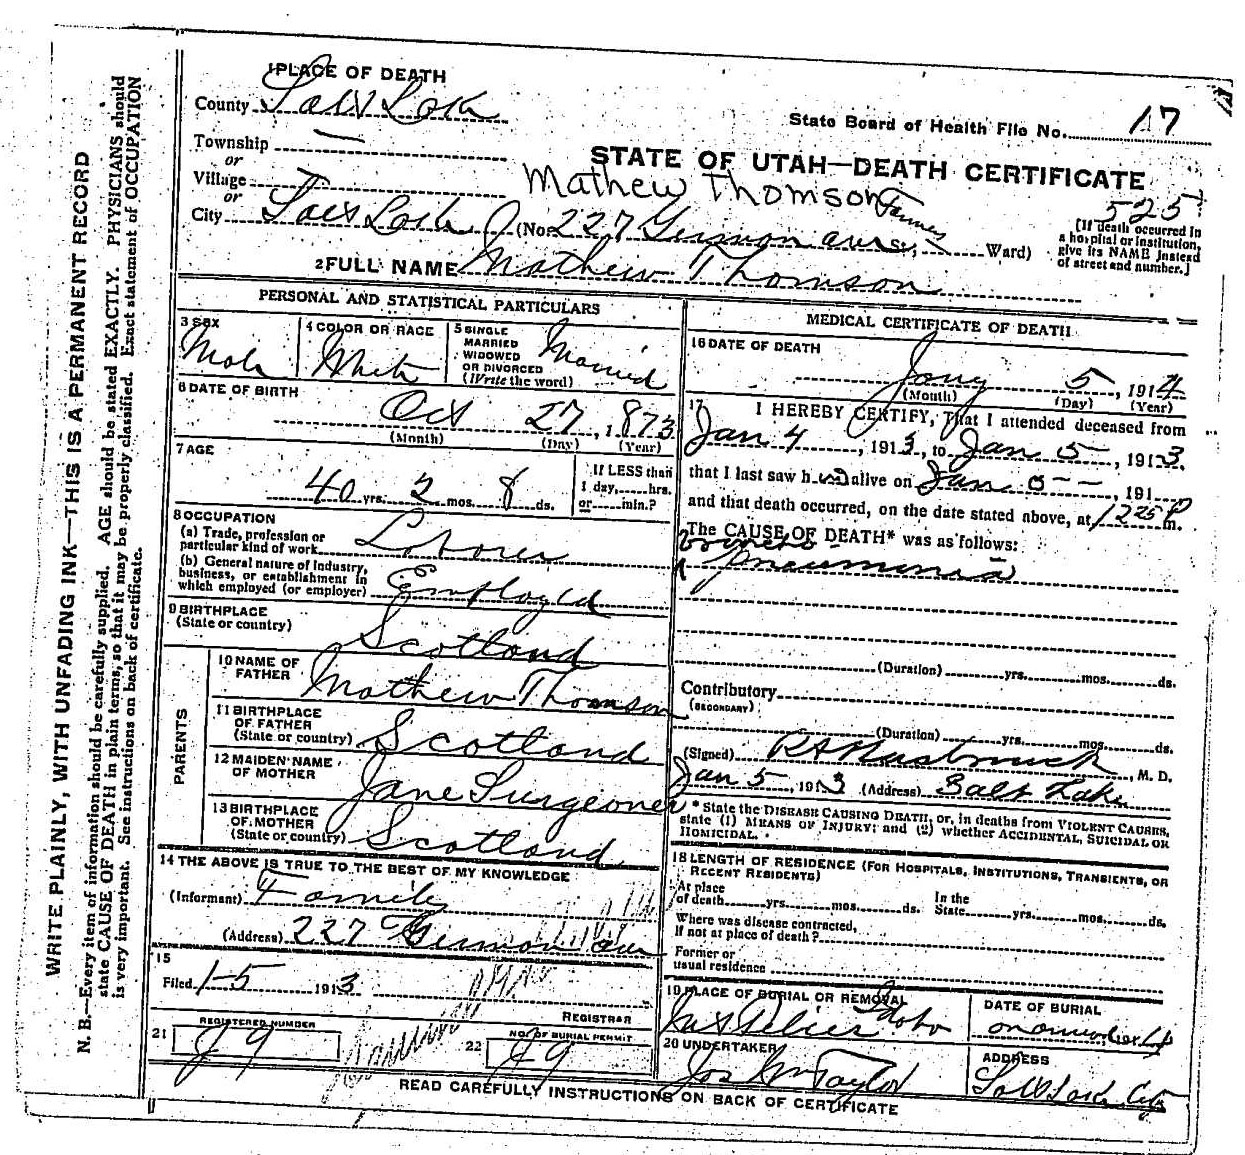 1 PLACE OF DEATH
County Salt Lake
State Board of Health File No. 17
Township —
or
Village
or
City Salt Lake (No. 227 German ave St., Ward)
STATE OF UTAH—DEATH CERTIFICATE
Mathew Thomson
525
[If death occurred in
a hospital or institution,
give its NAME instead
of street and number.]
2 FULL NAME Mathew Thomson
PERSONAL AND STATISTICAL PARTICULARS
3 SEX
Male
4 COLOR OR RACE
White
5 SINGLE
MARRIED
WIDOWED
OR DIVORCED
(Write the word)
Married
6 DATE OF BIRTH
Oct 27, 1873
(Month) (Day) (Year)
7 AGE
40 yrs. 2 mos. 8 ds.
If LESS than
1 day, hrs.
or min.?
8 OCCUPATION
(a) Trade, profession or
particular kind of work Laborer
(b) General nature of industry,
business, or establishment in
which employed (or employer) Employed
9 BIRTHPLACE
(State or country)
Scotland
PARENTS
10 NAME OF
FATHER Mathew Thomson
11 BIRTHPLACE
OF FATHER
(State or country) Scotland
12 MAIDEN NAME
OF MOTHER Jane Surgeoner
13 BIRTHPLACE
OF MOTHER
(State or country) Scotland
14 THE ABOVE IS TRUE TO THE BEST OF MY KNOWLEDGE
(Informant) Family
(Address) 227 German ave
15
Filed 1-5 1913
REGISTRAR
21
REGISTERED NUMBER
J9
22
NO. OF BURIAL PERMIT
J9
MEDICAL CERTIFICATE OF DEATH
16 DATE OF DEATH
Jany 5, 1914
(Month) (Day) (Year)
17 I HEREBY CERTIFY, That I attended deceased from
Jan 4, 1913, to Jan 5, 1913.
that I last saw h alive on Jan 5 — —, 191
and that death occurred, on the date stated above, at 1225 P m.
The CAUSE OF DEATH* was as follows:
pneumonia
(Duration) yrs. mos. ds.
Contributory
(SECONDARY)
(Duration) yrs. mos. ds.
(Signed) M. D.
Jan 5, 1913 (Address) Salt Lake
* State the DISEASE CAUSING DEATH, or, in deaths from VIOLENT CAUSES,
state (1) MEANS OF INJURY; and (2) whether ACCIDENTAL, SUICIDAL OR
HOMICIDAL.
18 LENGTH OF RESIDENCE (FOR HOSPITALS, INSTITUTIONS, TRANSIENTS, OR
RECENT RESIDENTS)
At place
of death yrs. mos. ds.
In the
State yrs. mos. ds.
Where was disease contracted,
if not at place of death?
Former or
usual residence
19 PLACE OF BURIAL OR REMOVAL
Montpelier Idaho
DATE OF BURIAL
1914
20 UNDERTAKER
Jos Wm Taylor
ADDRESS
Salt Lake City
READ CAREFULLY INSTRUCTIONS ON BACK OF CERTIFICATE
WRITE PLAINLY, WITH UNFADING INK—THIS IS A PERMANENT RECORD
N. B.—Every item of information should be carefully supplied. AGE should be stated EXACTLY. PHYSICIANS should
state CAUSE OF DEATH in plain terms, so that it may be properly classified. Exact statement of OCCUPATION
is very important. See instructions on back of certificate.